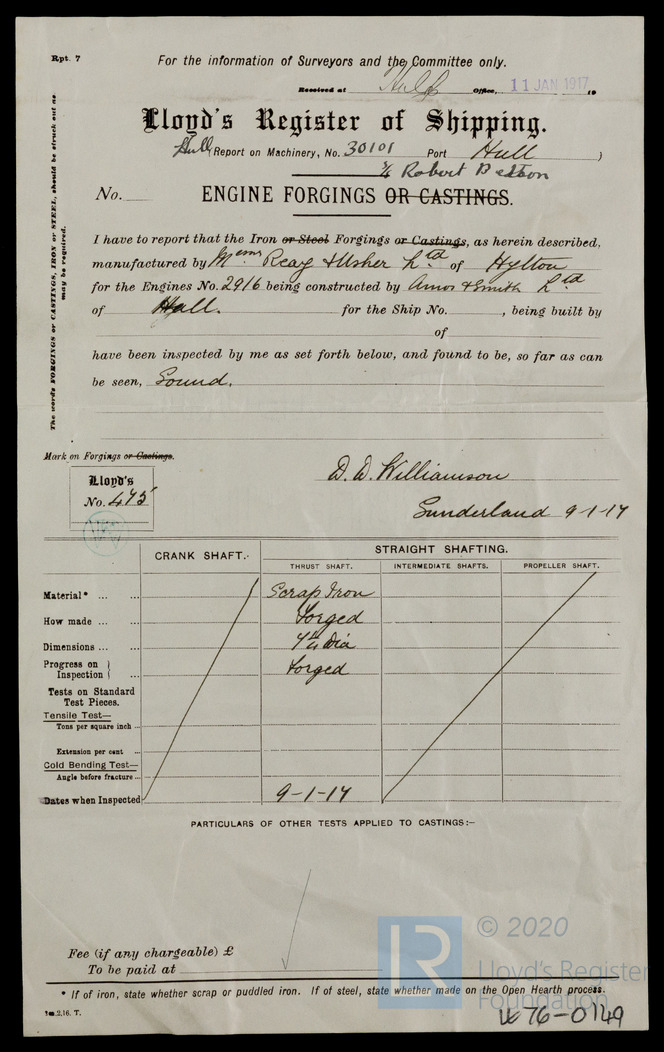 Rpt. 7
For the information of Surveyors and the Committee only.
Received at Hull Office, 11 JAN 1917 19
Lloyd's Register of Shipping.
Hull Report on Machinery, No. 30101 Port Hull )
Robert Betson
No. ENGINE FORGINGS OR CASTINGS.
The words FORGINGS or CASTINGS, IRON or STEEL, should be struck out as may be required.
I have to report that the Iron or Steel Forgings or Castings, as herein described,
manufactured by Messrs Reay & Usher Ltd of Hylton
for the Engines No. 2916 being constructed by Amos & Smith Ltd
of Hull. for the Ship No. , being built by
of
have been inspected by me as set forth below, and found to be, so far as can
be seen, Sound.
Mark on Forgings or Castings.
Lloyd's
No. 475
D. D. Williamson
Sunderland 9-1-17
CRANK SHAFT. STRAIGHT SHAFTING.
THRUST SHAFT. INTERMEDIATE SHAFTS. PROPELLER SHAFT.
Material* ... ... Scrap Iron
How made ... ... Forged
Dimensions ... ... Dia
Progress on Inspection } ... Forged
Tests on Standard Test Pieces.
Tensile Test—
Tons per square inch ...
Extension per cent ...
Cold Bending Test—
Angle before fracture ...
Dates when Inspected 9-1-17
PARTICULARS OF OTHER TESTS APPLIED TO CASTINGS:—
Fee (if any chargeable) £
To be paid at
* If of iron, state whether scrap or puddled iron. If of steel, state whether made on the Open Hearth process.
2.16. T.
LR © 2020
Lloyd's Register
Foundation
W676-0149